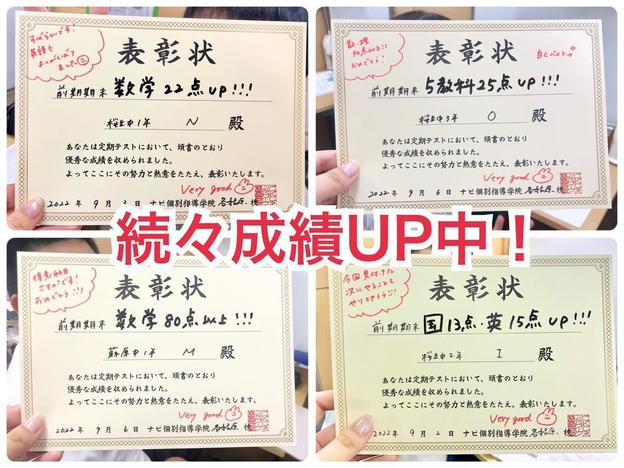 すばらしいです!
英語も
よくがんばり
ました
表彰状
前期期末 数学22点UP!!!
桜丘中1年 N 殿
あなたは定期テストにおいて、頭書のとおり
優秀な成績を収められました。
よってここにその努力と熱意をたたえ、表彰いたします。
Very good
2022年9月6日 ナビ個別指導学院
数・理
90点以上!!
おめでとう!
自己ベスト
表彰状
前期期末 5教科25点UP!!!
桜丘中3年 O 殿
あなたは定期テストにおいて、頭書のとおり
優秀な成績を収められました。
よってここにその努力と熱意をたたえ、表彰いたします。
Very good
2022年9月6日 ナビ個別指導学院
続々成績UP中!
おめでとう!!!
表彰状
前期期末 数学80点以上!!!
藤原中1年 M 殿
あなたは定期テストにおいて、頭書のとおり
優秀な成績を収められました。
よってここにその努力と熱意をたたえ、表彰いたします。
Very good
2022年9月6日 ナビ個別指導学院
今回見付けた
次にやることも
やりぬこう!!!
表彰状
前期期末 国13点・英15点UP!!!
桜丘中2年 I 殿
あなたは定期テストにおいて、頭書のとおり
優秀な成績を収められました。
よってここにその努力と熱意をたたえ、表彰いたします。
Very good
2022年9月2日 ナビ個別指導学院